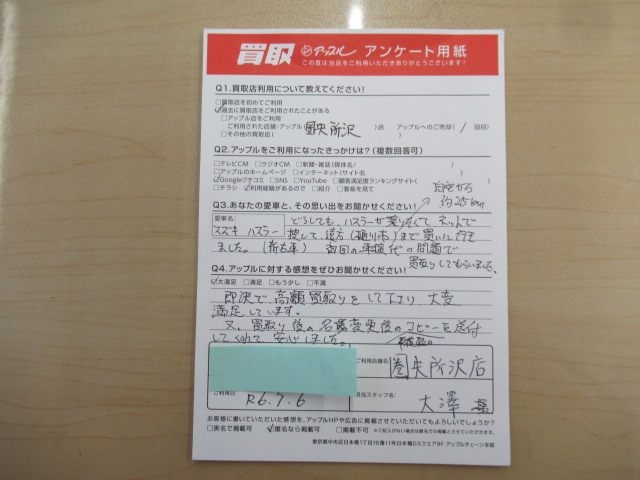 買取 アップル アンケート用紙
この度は当店をご利用いただきありがとうございます!
Q1.買取店利用について教えてください!
□買取店を初めてご利用
☑過去に買取店をご利用されたことがある
□アップル店をご利用
ご利用された店舗:アップル(圏央所沢)店 アップルへのご売却(1回目)
□その他の買取店( )
Q2.アップルをご利用になったきっかけは?(複数回答可)
□テレビCM □ラジオCM □新聞・雑誌(媒体名/ )
□アップルのホームページ □インターネット(サイト名 )
☑Googleクチコミ □SNS □YouTube □顧客満足度ランキングサイト( )
□チラシ ☑利用経験があるので □紹介 □看板を見て
自宅から
約25km
Q3.あなたの愛車と、その思い出をお聞かせください!
愛車名:
スズキ ハスラー
どうしても、ハスラーが乗りたくて、ネットで
捜して、遠方(桶川市)まで買いに行き
ました。(新古車) 今回の年代の問題で
買取りしてもらいました。
Q4.アップルに対する感想をぜひお聞かせください!
☑大満足 □満足 □もう少し □不満
即決で、高額買取りをして下さり、大変
満足しています。
又、買取り後の名義変更後のコピーを送付
してくれて、安心しました。
ご利用店舗名
圏央所沢店
ご利用日
R6.7.6
担当スタッフ名
大澤
お客様に書いていただいた感想を、アップルHPや広告に掲載させていただいてもよろしいでしょうか?
□実名で掲載可 ☑匿名なら掲載可 □掲載不可 *ご記入がない場合は掲載可とさせていただきます。
東京都中央区日本橋1丁目16番11号日本橋Dスクエア8F アップルチェーン本部